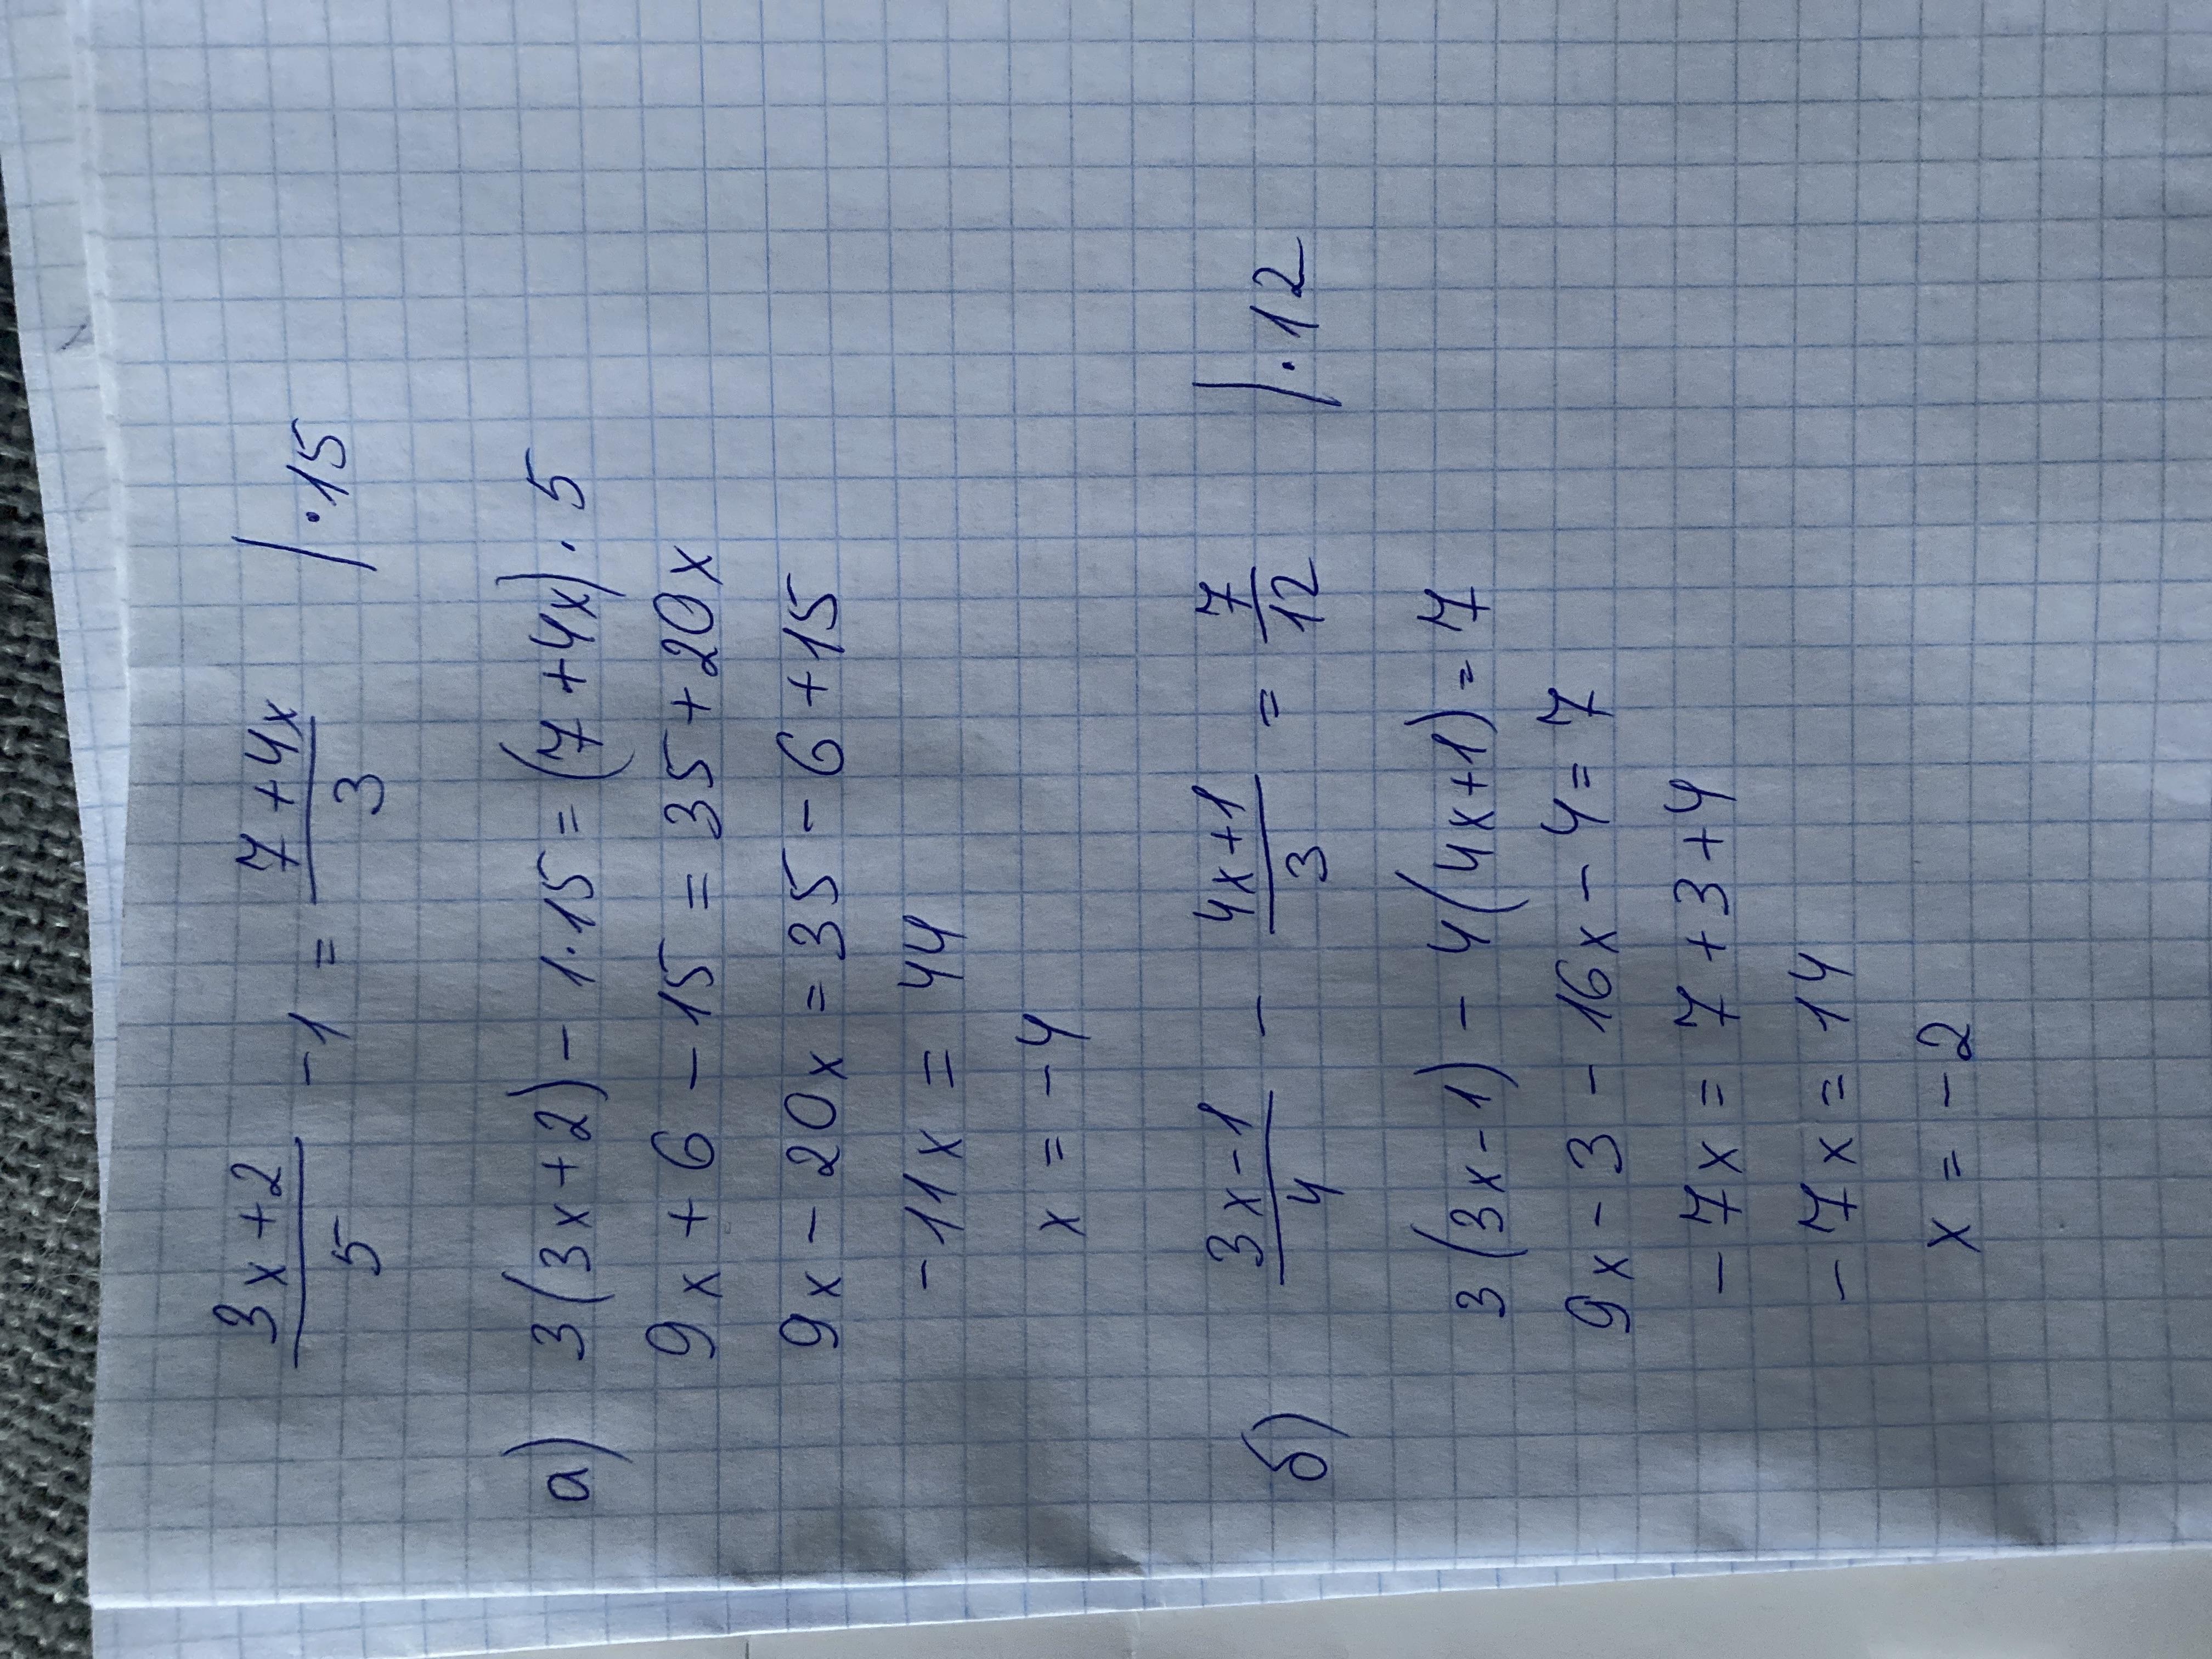 (3x+2)/5 -1 = (7+4x)/3 | ·15
а) 3(3x+2) - 1·15 = (7+4x)·5
9x + 6 - 15 = 35 + 20x
9x - 20x = 35 - 6 + 15
-11x = 44
x = -4
б) (3x-1)/4 - (4x+1)/3 = 7/12 | ·12
3(3x-1) - 4(4x+1) = 7
9x - 3 - 16x - 4 = 7
-7x = 7 + 3 + 4
-7x = 14
x = -2